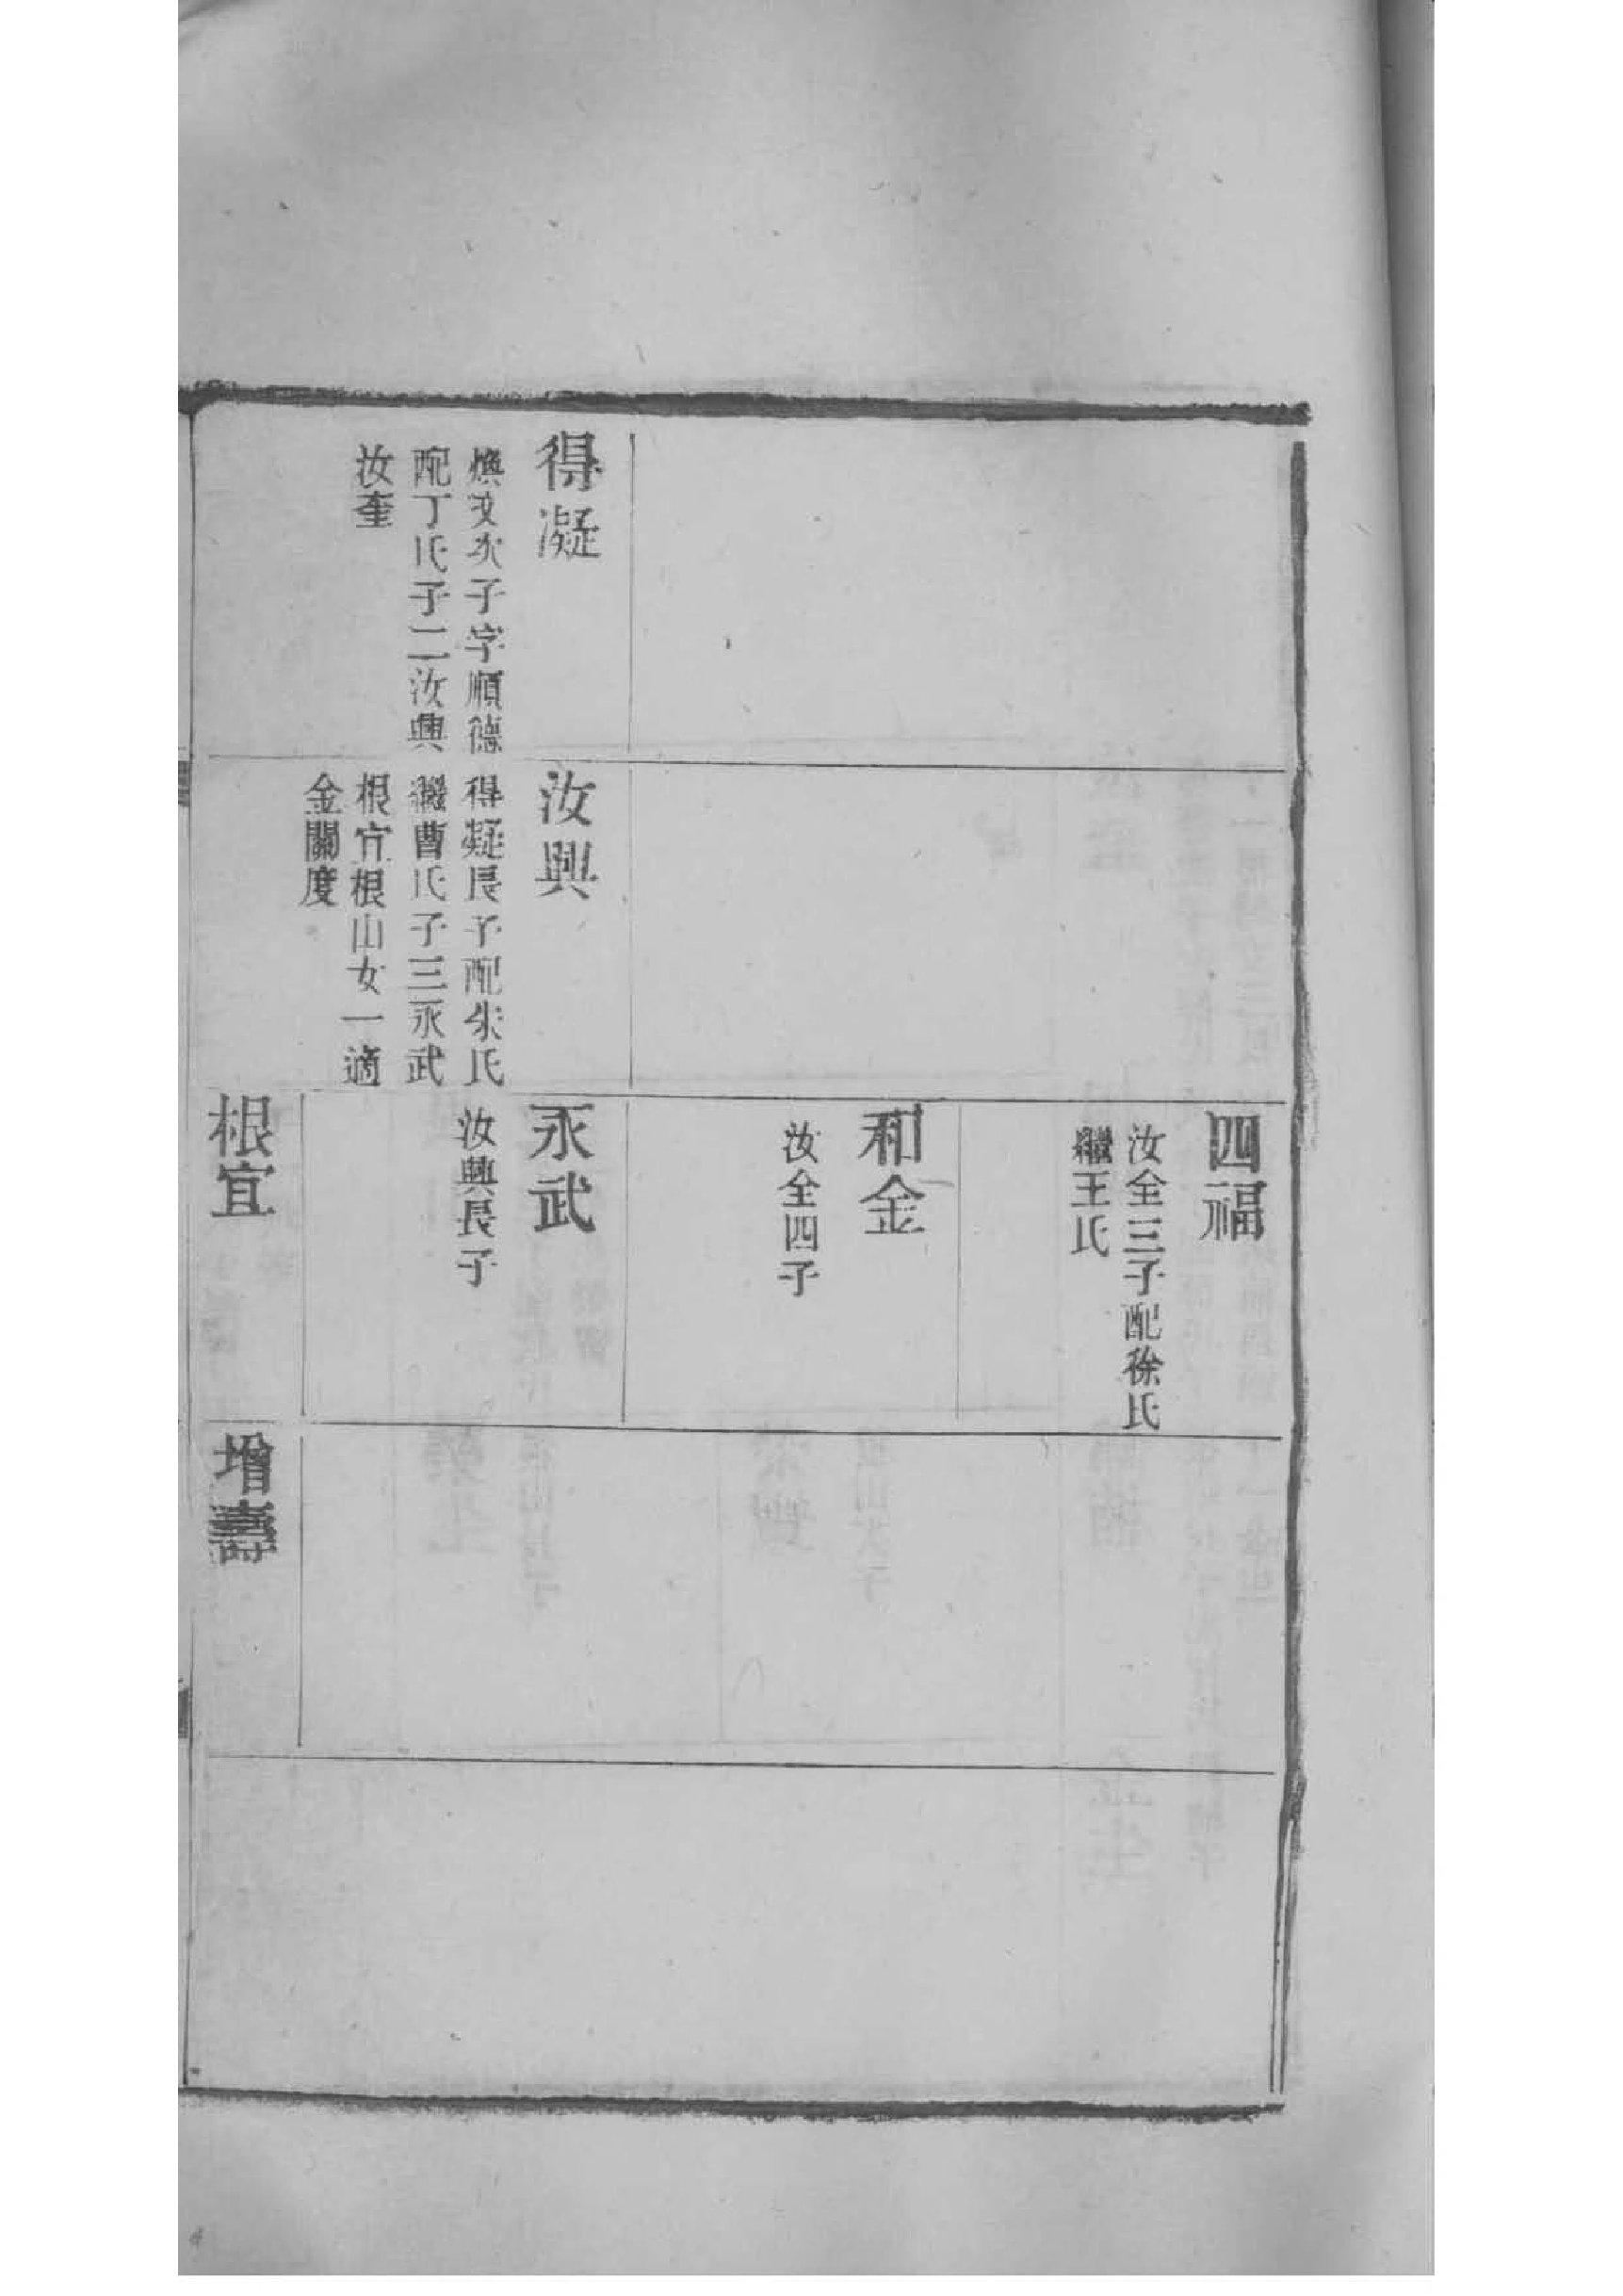 得凝
煥文次子字順德
配丁氏子二汝興
汝奎
汝興
得凝長子配朱氏
繼曹氏子三永武
根宜根山女一適
金關度
四福
汝全三子配徐氏
繼王氏
和金
汝全四子
永武
汝興長子
根宜
增壽